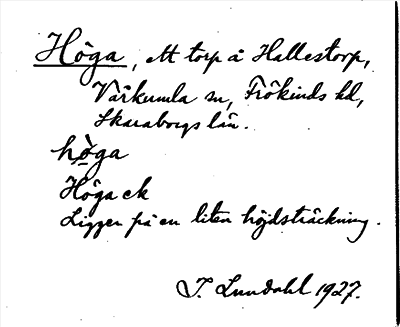 Höga, ett torp å Hallestorp,
Vårkumla sn, Frökinds hd,
Skaraborgs län.
hò̱ga
Höga ek
Ligger på en liten höjdsträckning.
I. Lundahl 1927.